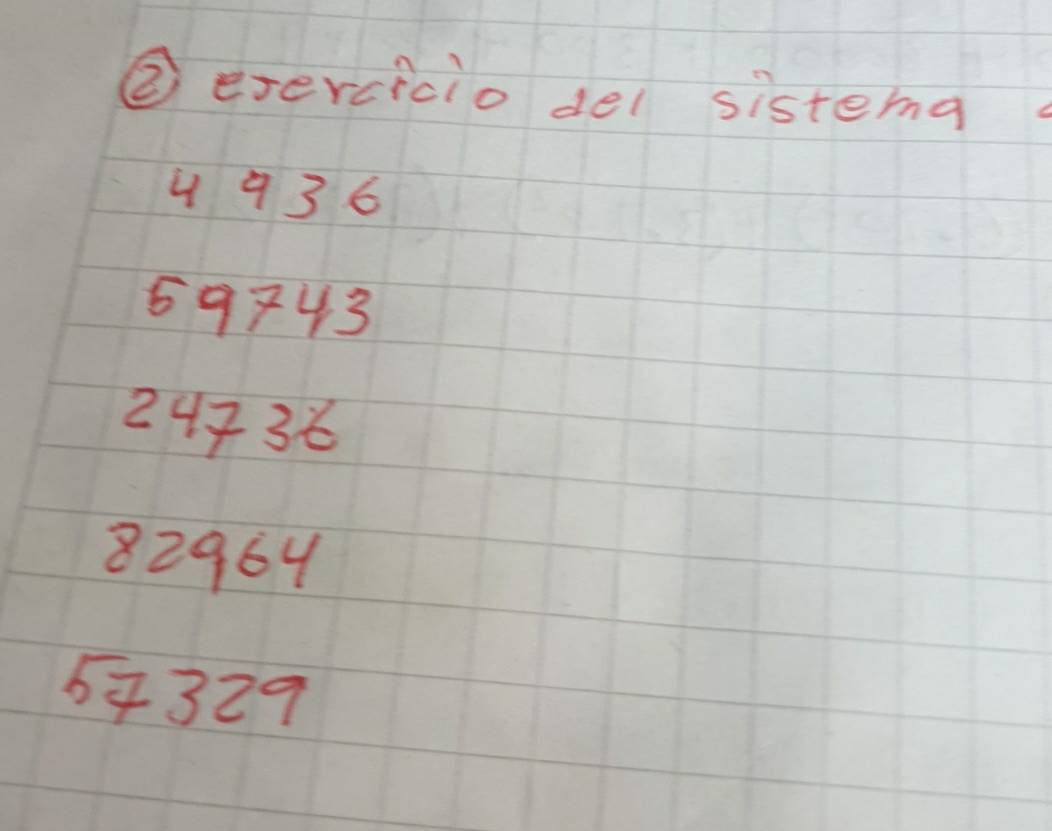 ② ejercicio del sistema
4936
59743
24736
82964
57329